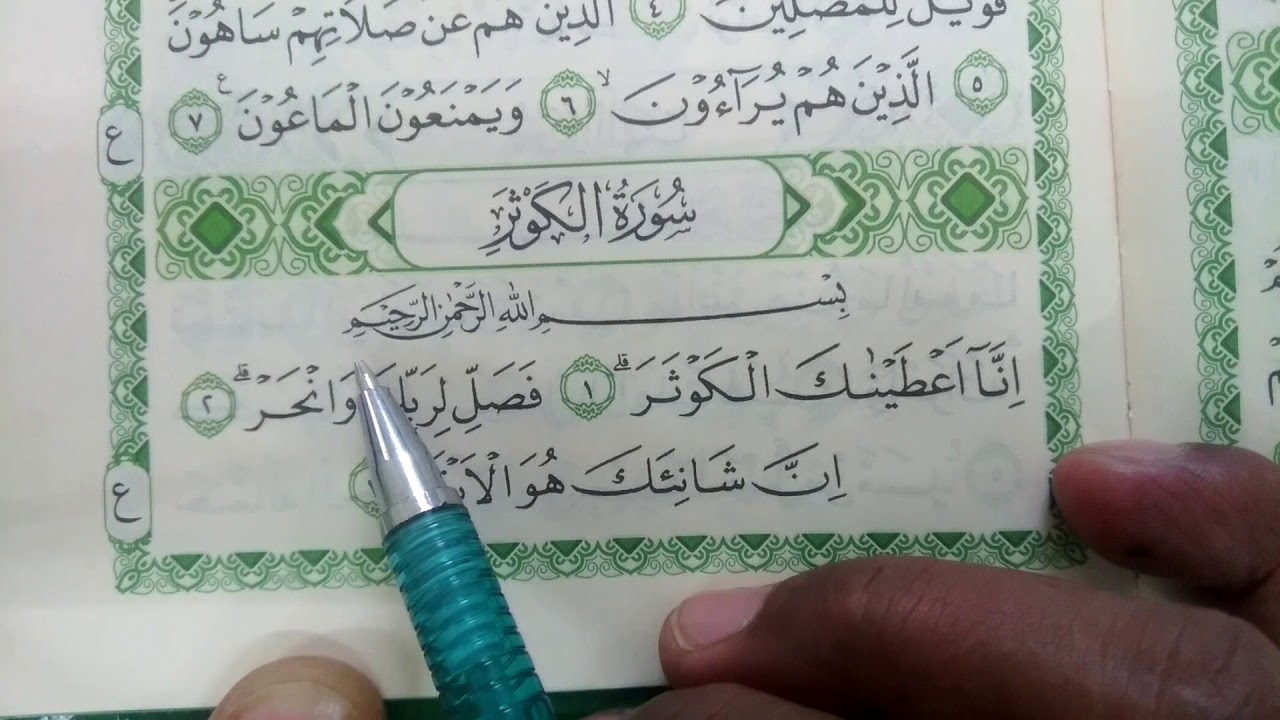 فَوَيْلٌ لِّلْمُصَلِّيْنَ ٤ الَّذِيْنَ هُمْ عَنْ صَلَاتِهِمْ سَاهُوْنَ
٥ الَّذِيْنَ هُمْ يُرَآءُوْنَ ۙ ٦ وَيَمْنَعُوْنَ الْمَاعُوْنَ ۚ ٧
ع
سُوْرَةُ الْكَوْثَرِ
بِسْمِ اللّٰهِ الرَّحْمٰنِ الرَّحِيْمِ
اِنَّآ اَعْطَيْنٰكَ الْكَوْثَرَ ۗ ١ فَصَلِّ لِرَبِّكَ وَانْحَرْ ۗ ٢
اِنَّ شَانِئَكَ هُوَ
ع